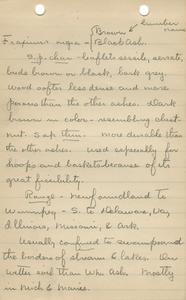 lumber name
Brown
Fraxinus nigra - Black Ash.
S.p. char - leaflets sessile, serrate,
buds brown or black, bark grey.
Wood softer less dense and more
porous than the other ashes. Dark
brown in color - resembling chest-
nut. Sap thin. more durable than
the other ashes. Used especially for
hoops and baskets because of its
great fissibility.
Range - Newfoundland to
Winnipeg - S. to Delaware, Va,
Illinois, Missouri, & Ark.
Usually confined to swamps and
the borders of streams & lakes. On
wetter soil than Wh. Ash. Mostly
in Mich & Maine.